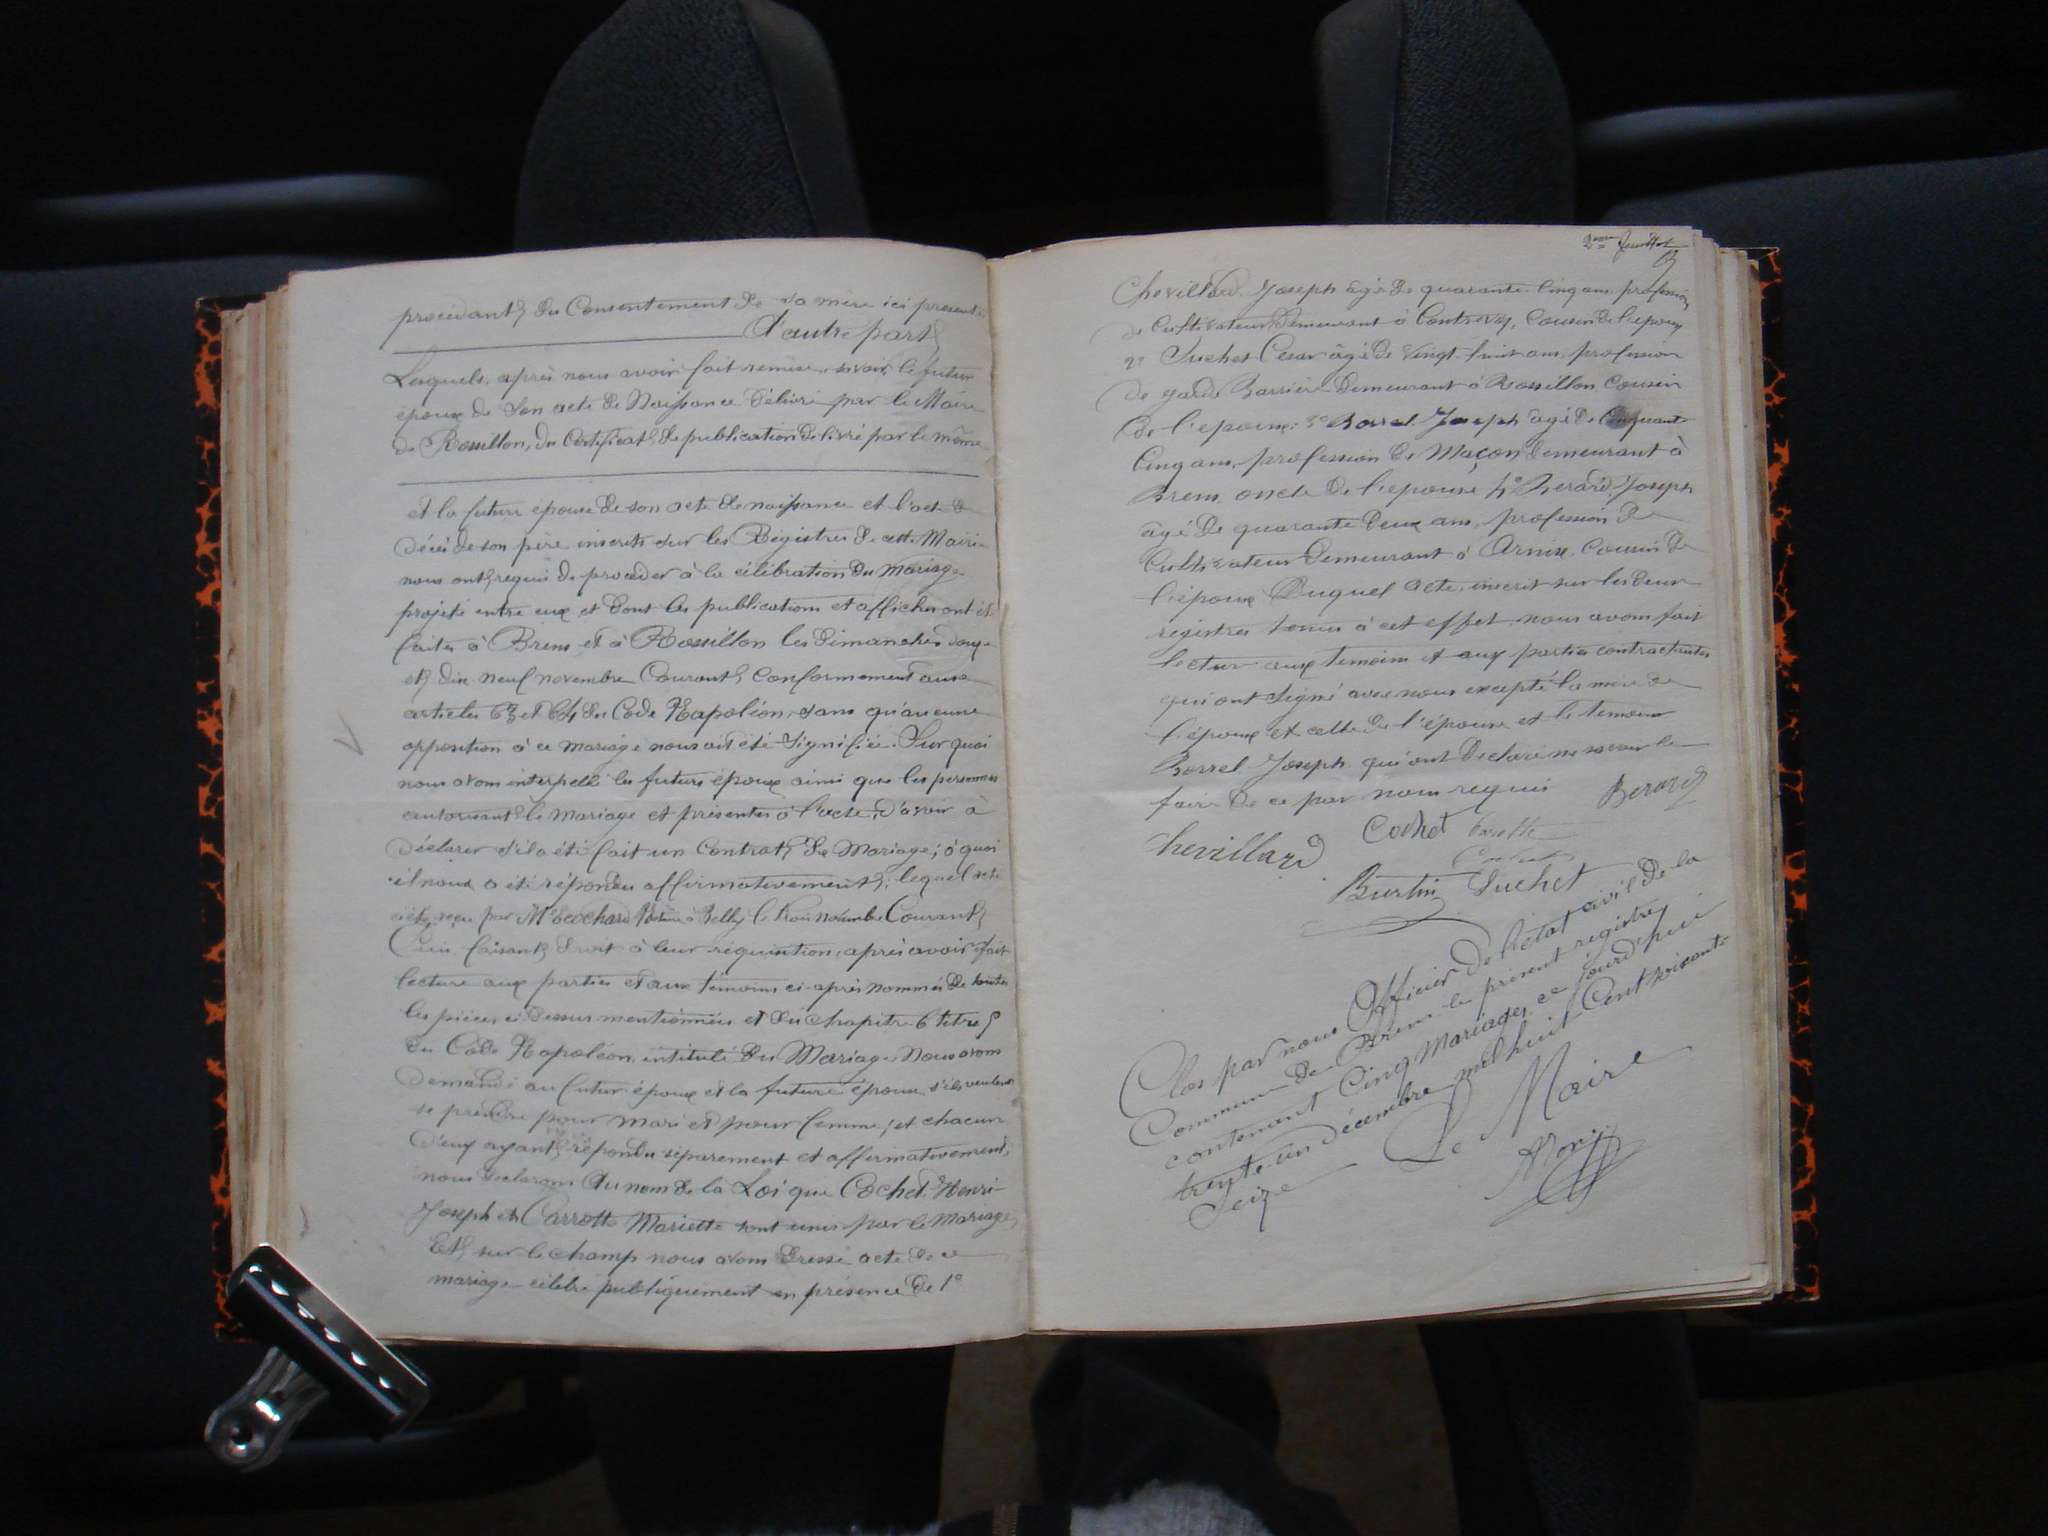 procédant du Consentement de sa mère ici présente
D'autre part
Lesquels, après nous avoir fait remise, savoir, le futur
époux de Son acte de Naissance délivré par le Maire
de Rossillon, du Certificat de publication délivré par le même
et la future épouse de son acte de naissance et l'acte de
décès de son père inscrits sur les Régistres de cette Mairie
nous ont requis de procéder à la célébration du mariage
projeté entre eux et dont les publications et affiches ont été
faites à Brens et à Rossillon les dimanches douze
et dix neuf novembre Courant, conformement aux
articles 63 et 64 du Code Napoléon, sans qu'aucune
opposition à ce mariage nous ait été signifiée. Sur quoi
nous avons interpellé les futurs époux ainsi que les personnes
autorisant le mariage et présentes à l'acte, d'avoir à
déclarer s'il a été fait un Contrat de Mariage; à quoi
il nous a été répondu affirmativement; lequel acte
reçu par Me Notaire à Belley le trois novembre Courant
faisant droit à leur réquisition, après avoir fait
lecture aux parties et aux témoins ci-après nommés de toutes
les pièces ci-dessus mentionnées et du chapitre 6 titre 5
du Code Napoléon, intitulé du Mariage, Nous avons
demandé au futur époux et la future épouse s'ils veulent
se prendre pour mari et pour femme; et chacun
d'eux ayant répondu séparement et affirmativement,
nous déclarons Au nom de la Loi que Cochet Henri-
Joseph et Carrotte Mariette sont unis par le mariage,
Et sur le champ nous avons dressé acte de ce
mariage célébré publiquement en présence de 1°
2me Feuillet
Chevillard Joseph âgé de quarante Cinq ans, profession
de Cultivateur Demeurant à Contrevoz, Cousin de l'époux
2° Suchet César âgé de Vingt huit ans, profession
de garde Barrière Demeurant à Rossillon Cousin
de l'époux: 3° Borrel Joseph âgé de Cinquante
Cinq ans, profession de Maçon demeurant à
Brens, oncle de l'épouse 4° Berard Joseph
âgé de quarante deux ans, profession de
Cultivateur Demeurant à Arnix, Cousin de
l'époux Duquel acte, inscrit sur les deux
registres tenus à cet effet, nous avons fait
lecture aux temoins et aux parties contractantes
qui ont signé avec nous excepté la mère de
l'époux et celle de l'épouse et le temoin
Borrel Joseph qui ont Declaré ne savoir le
faire de ce par nous requis Berard
Chevillard Cochet
Burtin Suchet
Clos par nous Officier de l'état civil de la
Commune de Brens le présent registre
contenant Cinq Mariages, ce jourd'hui
trente-un décembre mil huit Cent soixante
Seize
Le Maire